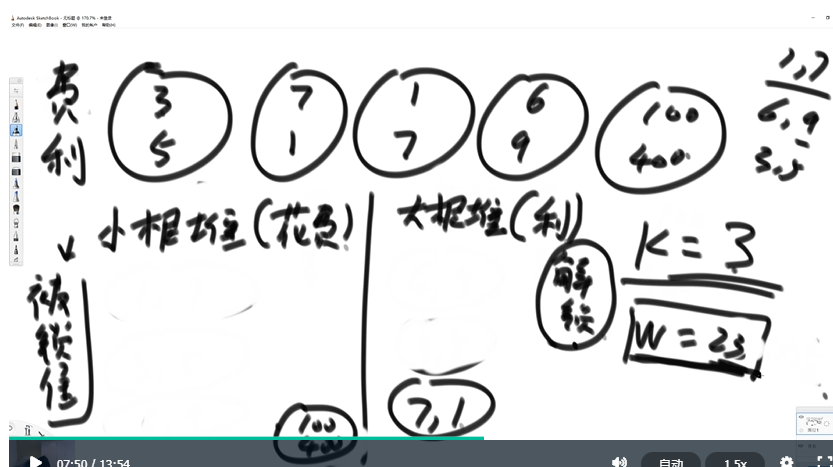 Autodesk SketchBook - 无标题 @ 170.7% - 未登录
文件(F) 编辑(E) 图像(I) 窗口(W) 我的帐户 帮助(H)
费 3 7 1 6 100
利 5 1 7 9 400
1,7
6,9
3,5
小根堆(花费) 大根堆(利)
被锁住
解锁
K = 3
W = 23
7,1
100
400
07:50 / 13:54 自动 1.5x